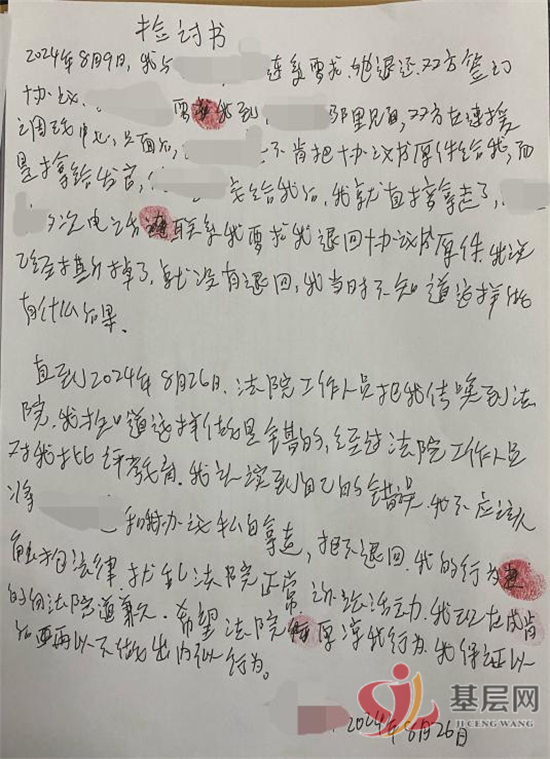 检讨书
2024年8月9日,我与 连系要求.他退还.双方签订
协议. 要求我到 那里见面,双方在连接
调线中心,见面后, 不肯把协议书原件给我,而
是拿给法官, 交给我后,我就直接拿走了,
多次电话连联系我要求我退回协议书原件.我说
已经撕掉了,就没有退回,我当时不知道这样做
有什么后果.
直到2024年8月26日,法院工作人员把我传唤到法
院.我才知道这样做是错误的,经过法院工作人员
对我批评教育.我认识到自己的错误.我不应该
将 和解协议私自拿走,拒不退回.我的行为
触犯法律.扰乱法院正常诉讼活动.我现在诚肯
的向法院道兼欠.希望法院 原谅我行为.我保证以
后 再以不做出内似行为。
2024年8月26日
基层网
JI CENG WANG